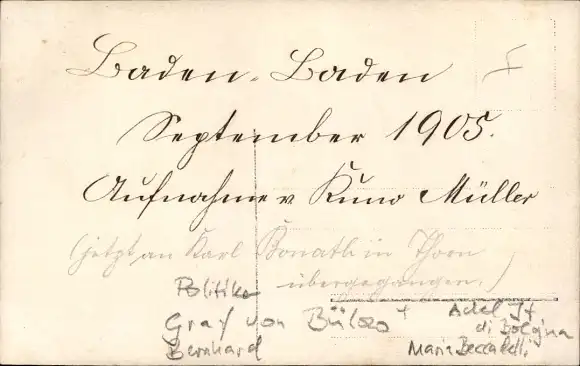 Baden-Baden
September 1905.
Aufnahme v Kuno Müller
(jetzt an Karl Bonath in Thorn
übergegangen.)
Politiker
Graf von Bülow +
Bernhard
Adel It.
di Bologna
Maria Beccadelli